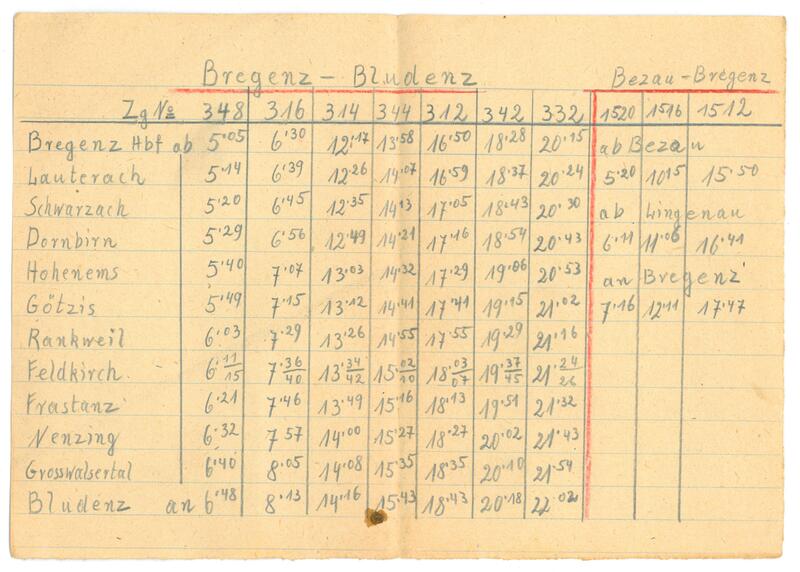 Bregenz – Bludenz Bezau – Bregenz
Zg No 348 316 314 344 312 342 332 1520 1516 1512
Bregenz Hbf ab 5·05 6·30 12·17 13·58 16·50 18·28 20·15 ab Bezau
Lauterach 5·14 6·39 12·26 14·07 16·59 18·37 20·24 5·20 10·15 15·50
Schwarzach 5·20 6·45 12·35 14·13 17·05 18·43 20·30 ab Lingenau
Dornbirn 5·29 6·56 12·49 14·21 17·16 18·54 20·43 6·11 11·06 16·41
Hohenems 5·40 7·07 13·03 14·32 17·29 19·06 20·53 an Bregenz
Götzis 5·49 7·15 13·12 14·41 17·41 19·15 21·02 7·16 12·11 17·47
Rankweil 6·03 7·29 13·26 14·55 17·55 19·29 21·16
Feldkirch 6·11/15 7·36/40 13·34/42 15·02/10 18·03/07 19·37/45 21·24/26
Frastanz 6·21 7·46 13·49 15·16 18·13 19·51 21·32
Nenzing 6·32 7·57 14·00 15·27 18·27 20·02 21·43
Grosswalsertal 6·40 8·05 14·08 15·35 18·35 20·10 21·54
Bludenz an 6·48 8·13 14·16 15·43 18·43 20·18 22·02